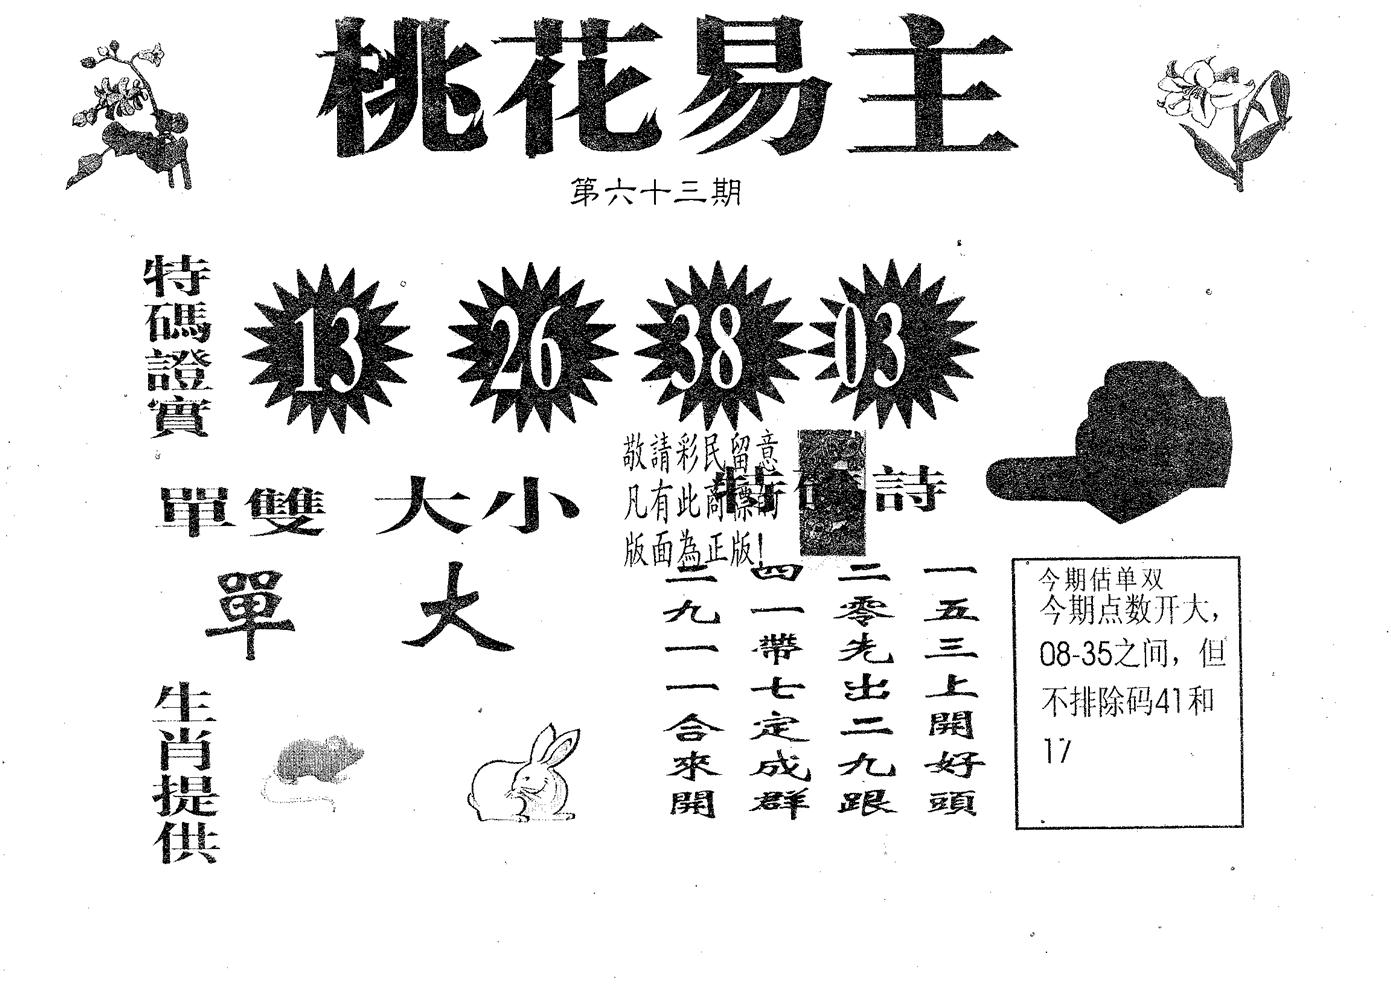 桃花易主
第六十三期
特碼證實
13 26 38 03
敬請彩民留意
凡有此商標的
版面為正版!
特碼詩
單雙 大小
單 大
一五三上開好頭
二零先出二九跟
四一帶七定成群
二九一一合來開
今期估单双
今期点数开大，
08-35之间，但
不排除码41和
17
生肖提供